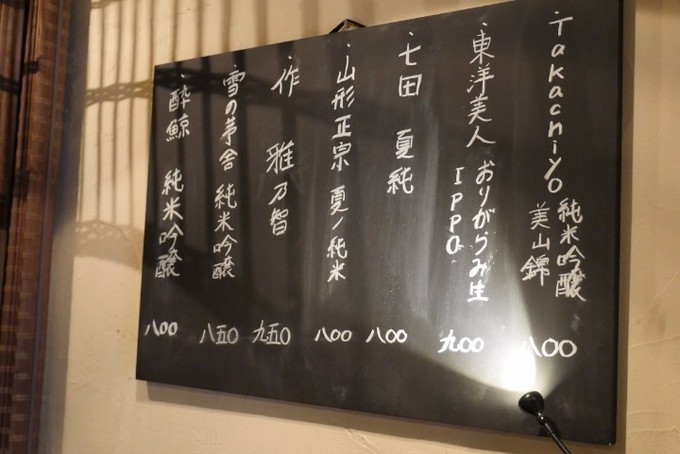 ・Takachiyo 純米吟醸
美山錦 八〇〇
・東洋美人 おりがらみ生
IPPO 九〇〇
・七田 夏純 八〇〇
・山形正宗 夏ノ純米 八〇〇
・作 雅乃智 九五〇
・雪の茅舎 純米吟醸 八五〇
・酔鯨 純米吟醸 八〇〇